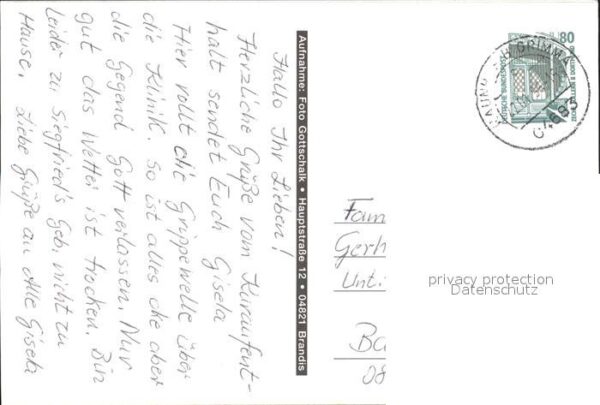 Hallo Ihr Lieben!
Herzliche Grüße vom Kuraufent-
halt sendet Euch Gisela
Hier rollt die Grippewelle über
die Klinik. So ist alles oke aber
die Gegend Gott verlassen. Nur
gut das Wetter ist trocken. Bin
leider zu Siegfried's Geb. nicht zu
Hause. Liebe Grüße an Alle Gisela
Aufnahme: Foto Gottschalk • Hauptstraße 12 • 04821 Brandis
80
DEUTSCHE BUNDESPOST
GRIMMA
Fam
Gerh
Unt
Ba
08
privacy protection
Datenschutz